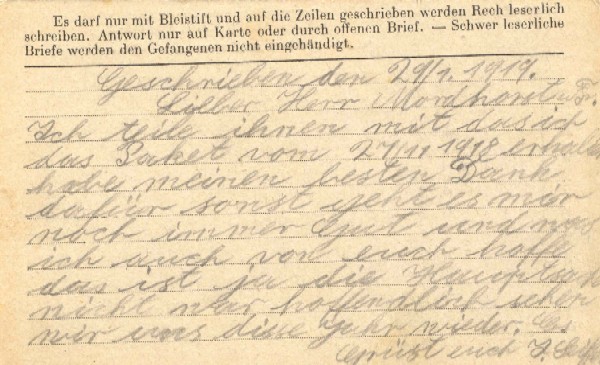 Es darf nur mit Bleistift und auf die Zeilen geschrieben werden Rech leserlich
schreiben. Antwort nur auf Karte oder durch offenen Brief. — Schwer leserliche
Briefe werden den Gefangenen nicht eingehändigt.
Geschrieben den 29/1. 1919.
Lieber Herr Mordhorst u Fr.
Ich teile ihnen mit das ich
das Paket vom 27/11 1918 erhalt
habe meinen besten Dank
dafür sonst geht es mir
noch immer Gut und was
ich auch von euch hoffe
das ist ja die Hauptsach
nicht war hoffendlich sehen
wir uns dise Jahr wieder. Es
Grüst euch J.